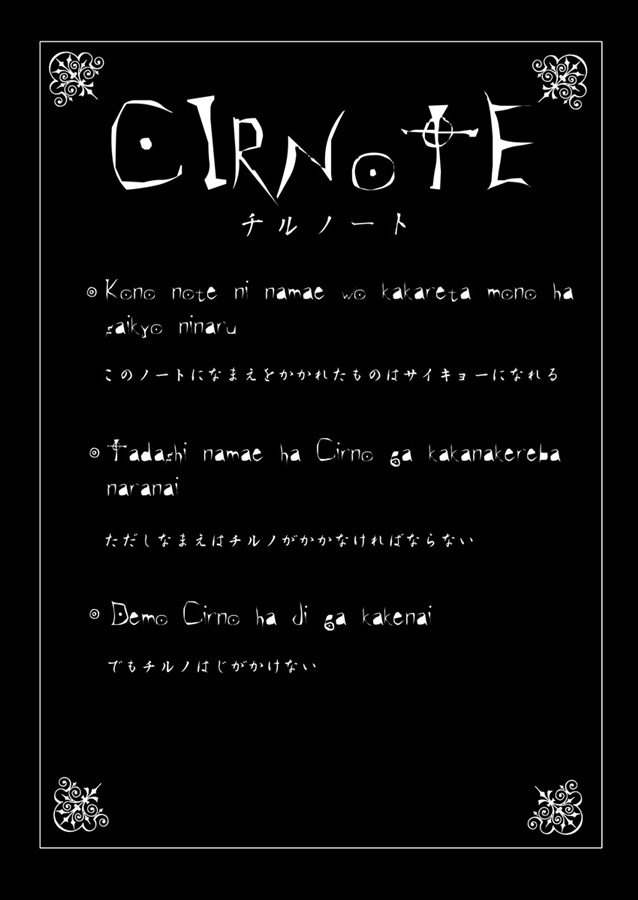 CIRNOTE
チルノート
Kono note ni namae wo kakareta mono ha
gaikyo ninaru
このノートになまえをかかれたものはサイキョーになれる
Tadashi namae ha Cirno ga kakanakereba
naranai
ただしなまえはチルノがかかなければならない
Demo Cirno ha di ga kakenai
でもチルノはじがかけない